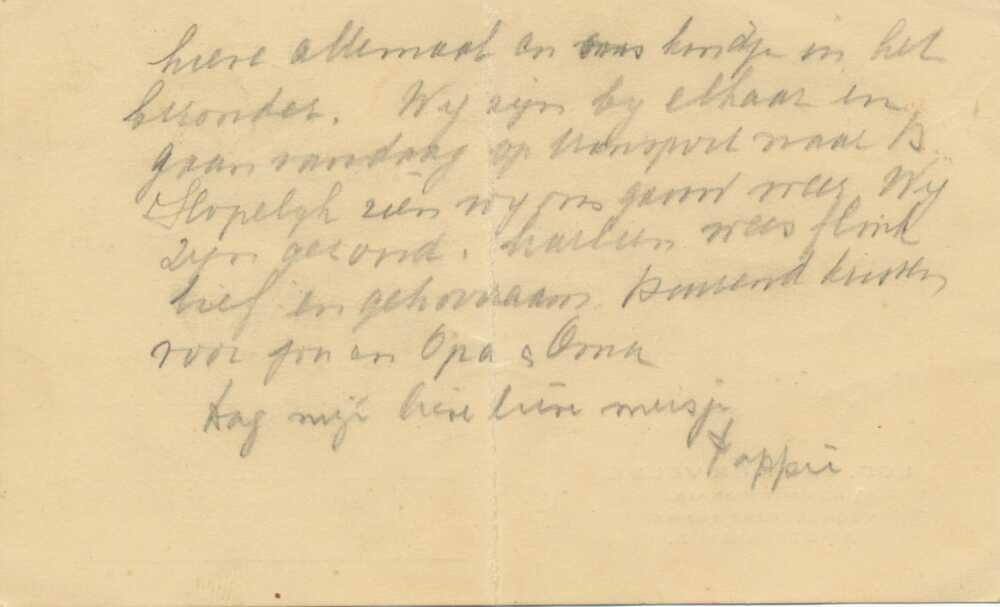 lieve allemaal en ons kindje in het
bezonder. Wij zijn by elkaar en
gaan vandaag op transport naar B.
Hopelyk zien wy ons gauw weer. Wij
zijn gezond. wees flink
lief en gehoorzaam. Duizend kussen
voor jou en Opa & Oma
Dag mijn lieve lieve meisje
Pappie